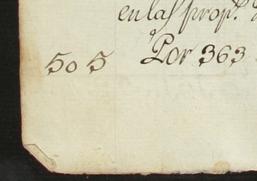 en las prop.s
505 Por 363